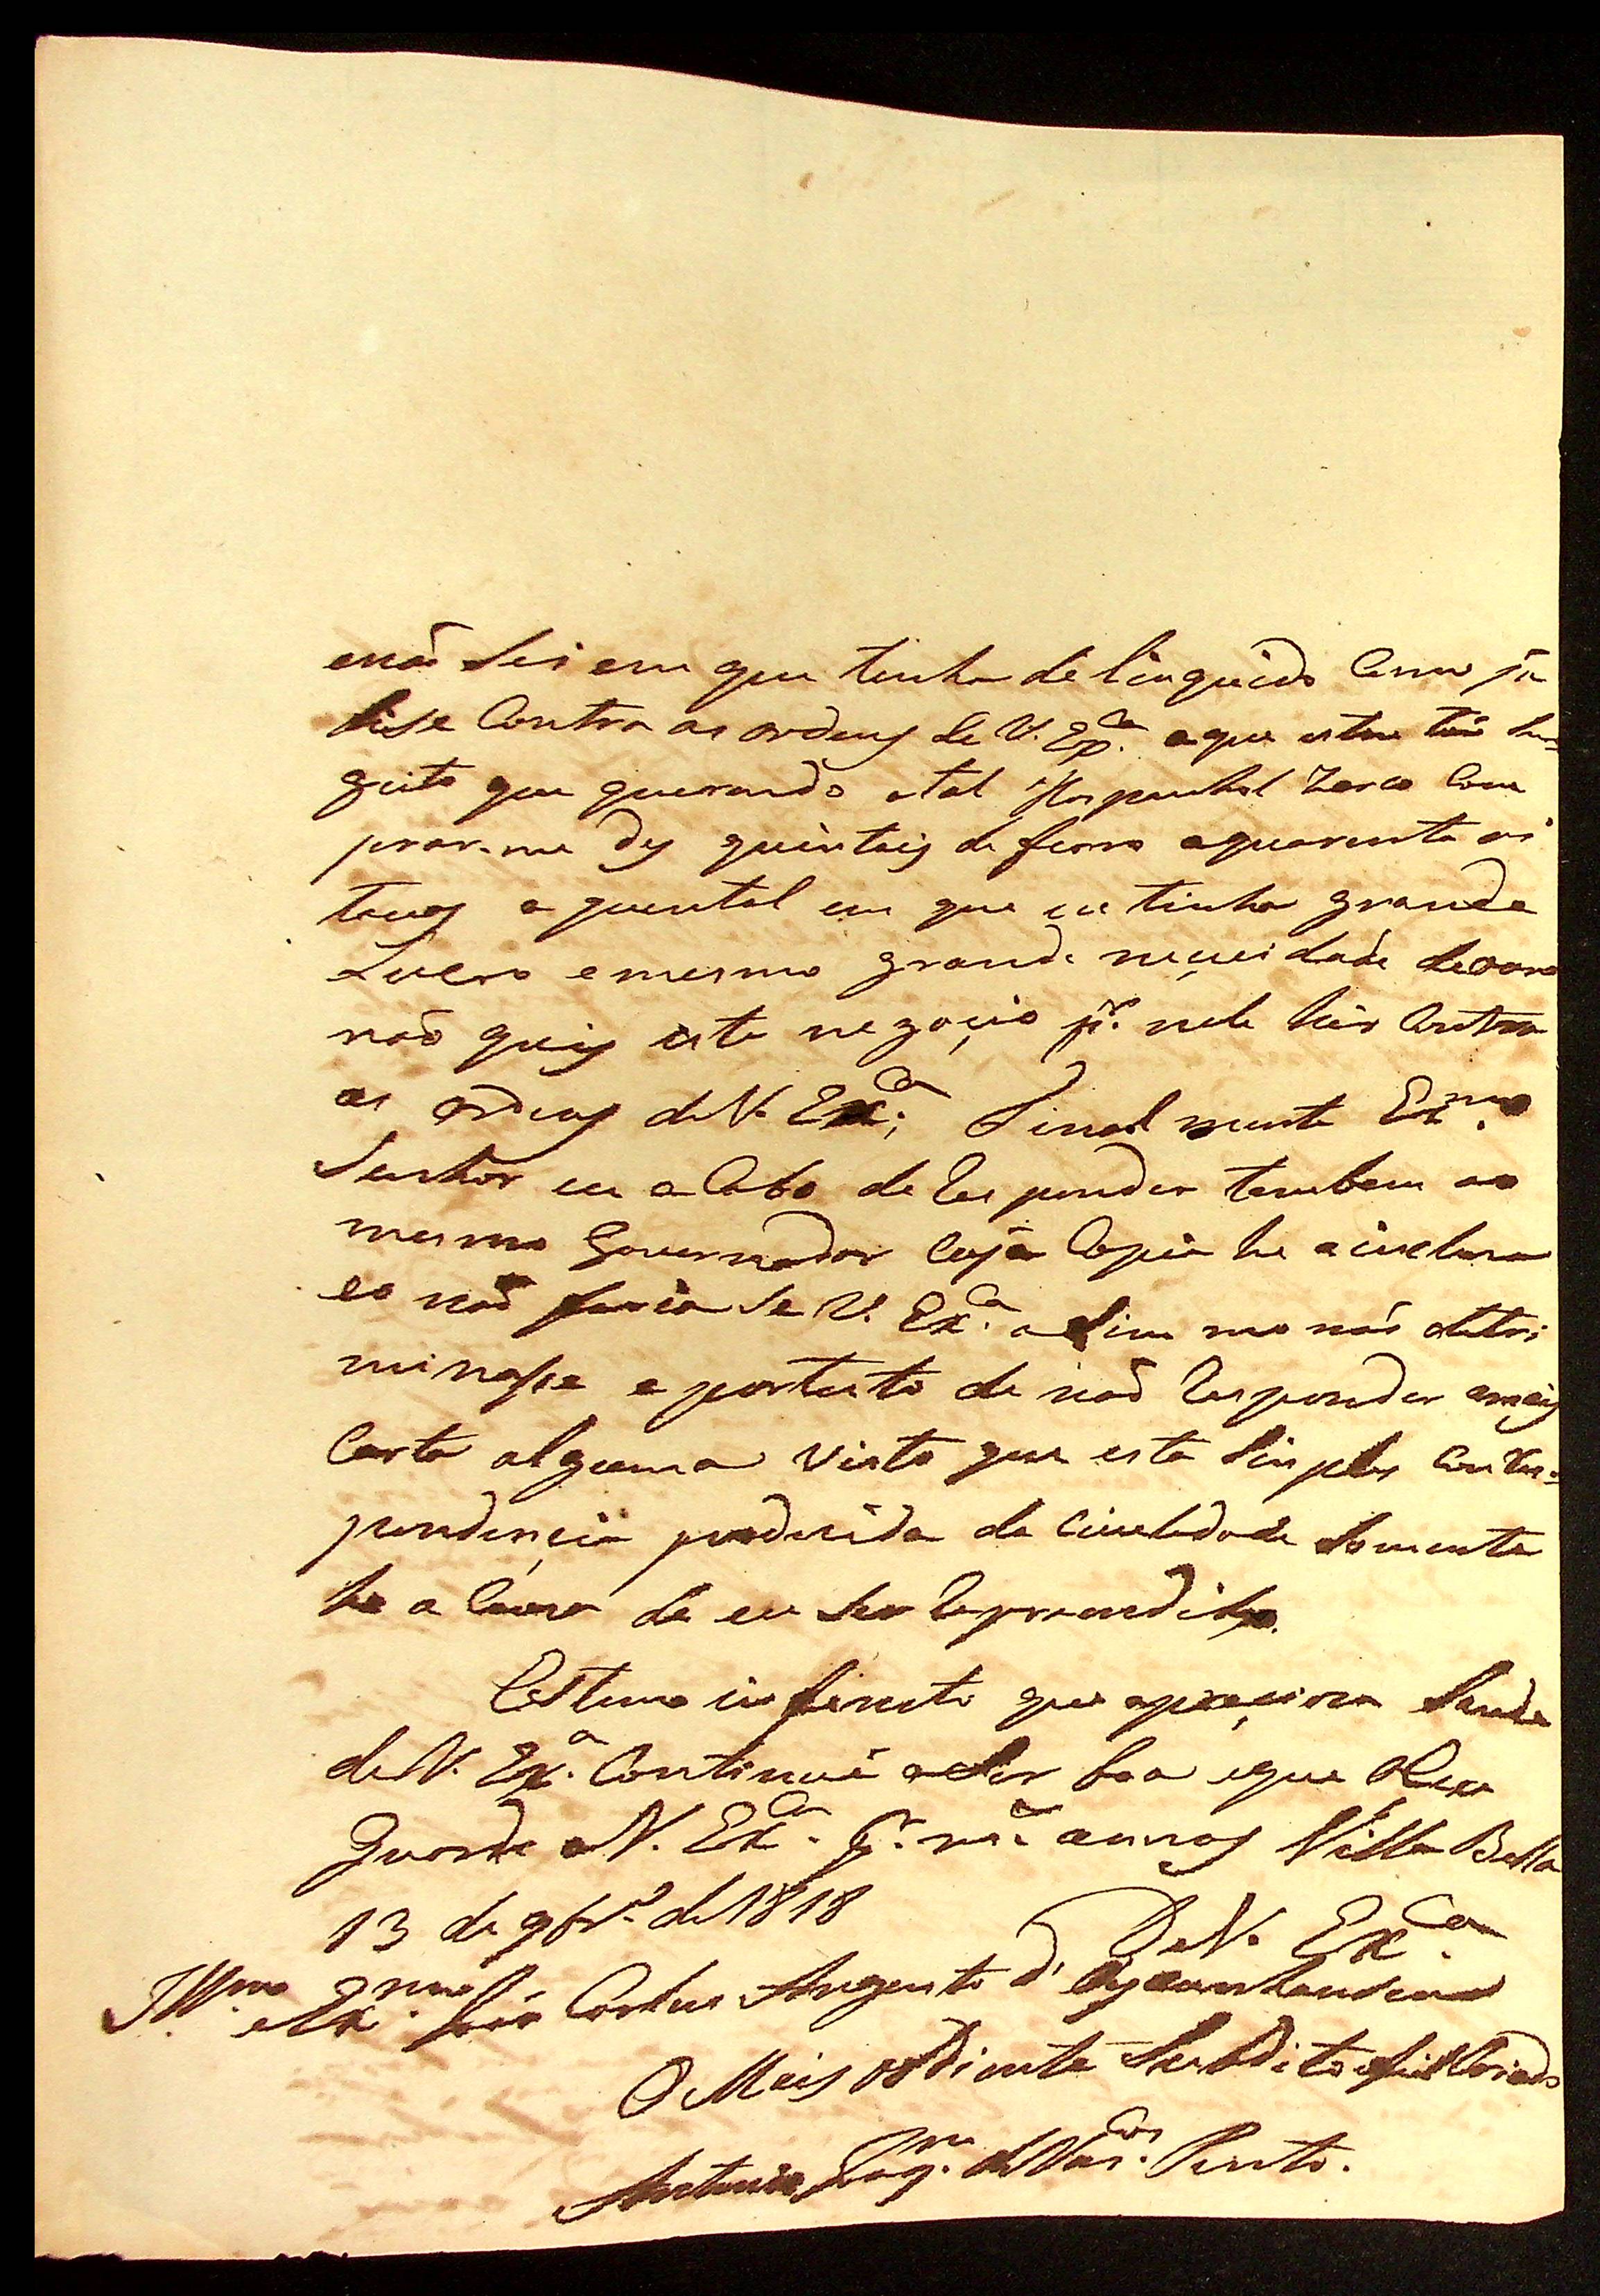 enaõ sei em que tinha delinquido Como ja
disse Contra as ordens de V. Ex.ca aque estou taõ su=
geito que querendo o tal Hespanhol Zarco Com
prar-me des quintais de ferro aquarenta oi
tavas o quintal em que eu tinha grande
Lucro e mesmo grande neçecidade de ouro
naõ quis este negoçio p.r nele hir Contra
as ordens de V. Ex.ca; Finalmente Ex.mo
Senhor eu acabo de Responder tambem ao
mesmo Governador Cuja Copia he a incluza
eo naõ faria se V. Ex.ca asim mo naõ detri
minasse e portesto de naõ Responder amais
Carta alguma visto que esta simples Corres=
pondençia produzida da Civelidade somente
he a Cauza de eu ser Reprendido.
Estimo infinito que apreçioza saude
de V. Ex.a Continue aser boa eque Deos
Guarde a V. Ex.ca p.r m.s annos Villa Bella
13 de 9br.o de 1818
De V. Ex.ca
Ill.mo e Ex.mo Snr. Joaõ Carlos Augusto d'Oyenhausend
O Mais obdiente Subdito efiel Criado
Antonio Joaq.m de Vas.cos Pinto.